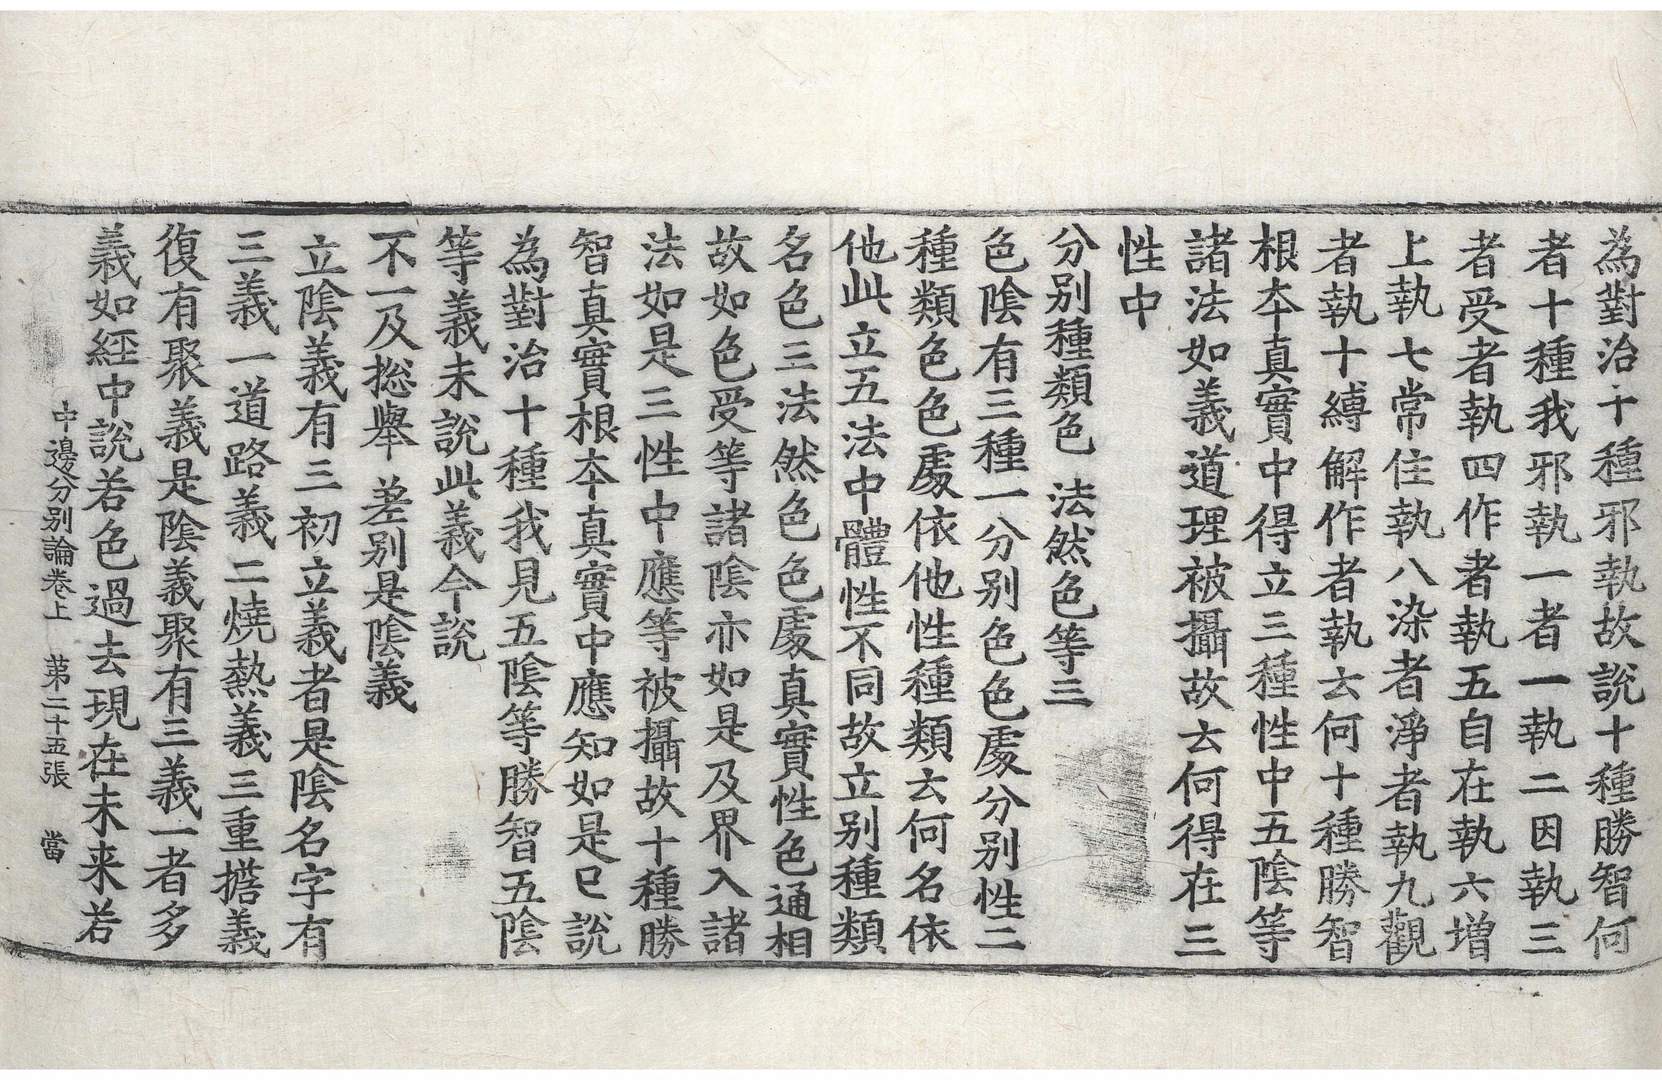 為對治十種邪執故說十種勝智何
者十種我邪執一者一執二因執三
者受者執四作者執五自在執六增
上執七常住執八染者淨者執九觀
者執十縛解作者執云何十種勝智
根本真實中得立三種性中五陰等
諸法如義道理被攝故云何得在三
性中
分別種類色 法然色等三
色陰有三種一分別色色處分別性二
種類色色處依他性種類云何名依
他此立五法中體性不同故立別種類
名色三法然色色處真實性色通相
故如色受等諸陰亦如是及界入諸
法如是三性中應等被攝故十種勝
智真實根本真實中應知如是已說
為對治十種我見五陰等勝智五陰
等義未說此義今說
不一及捴舉 差別是陰義
立陰義有三初立義者是陰名字有
三義一道路義二燒熱義三重擔義
復有聚義是陰義聚有三義一者多
義如經中說若色過去現在未来若
中邊分別論卷上 第二十五張 當